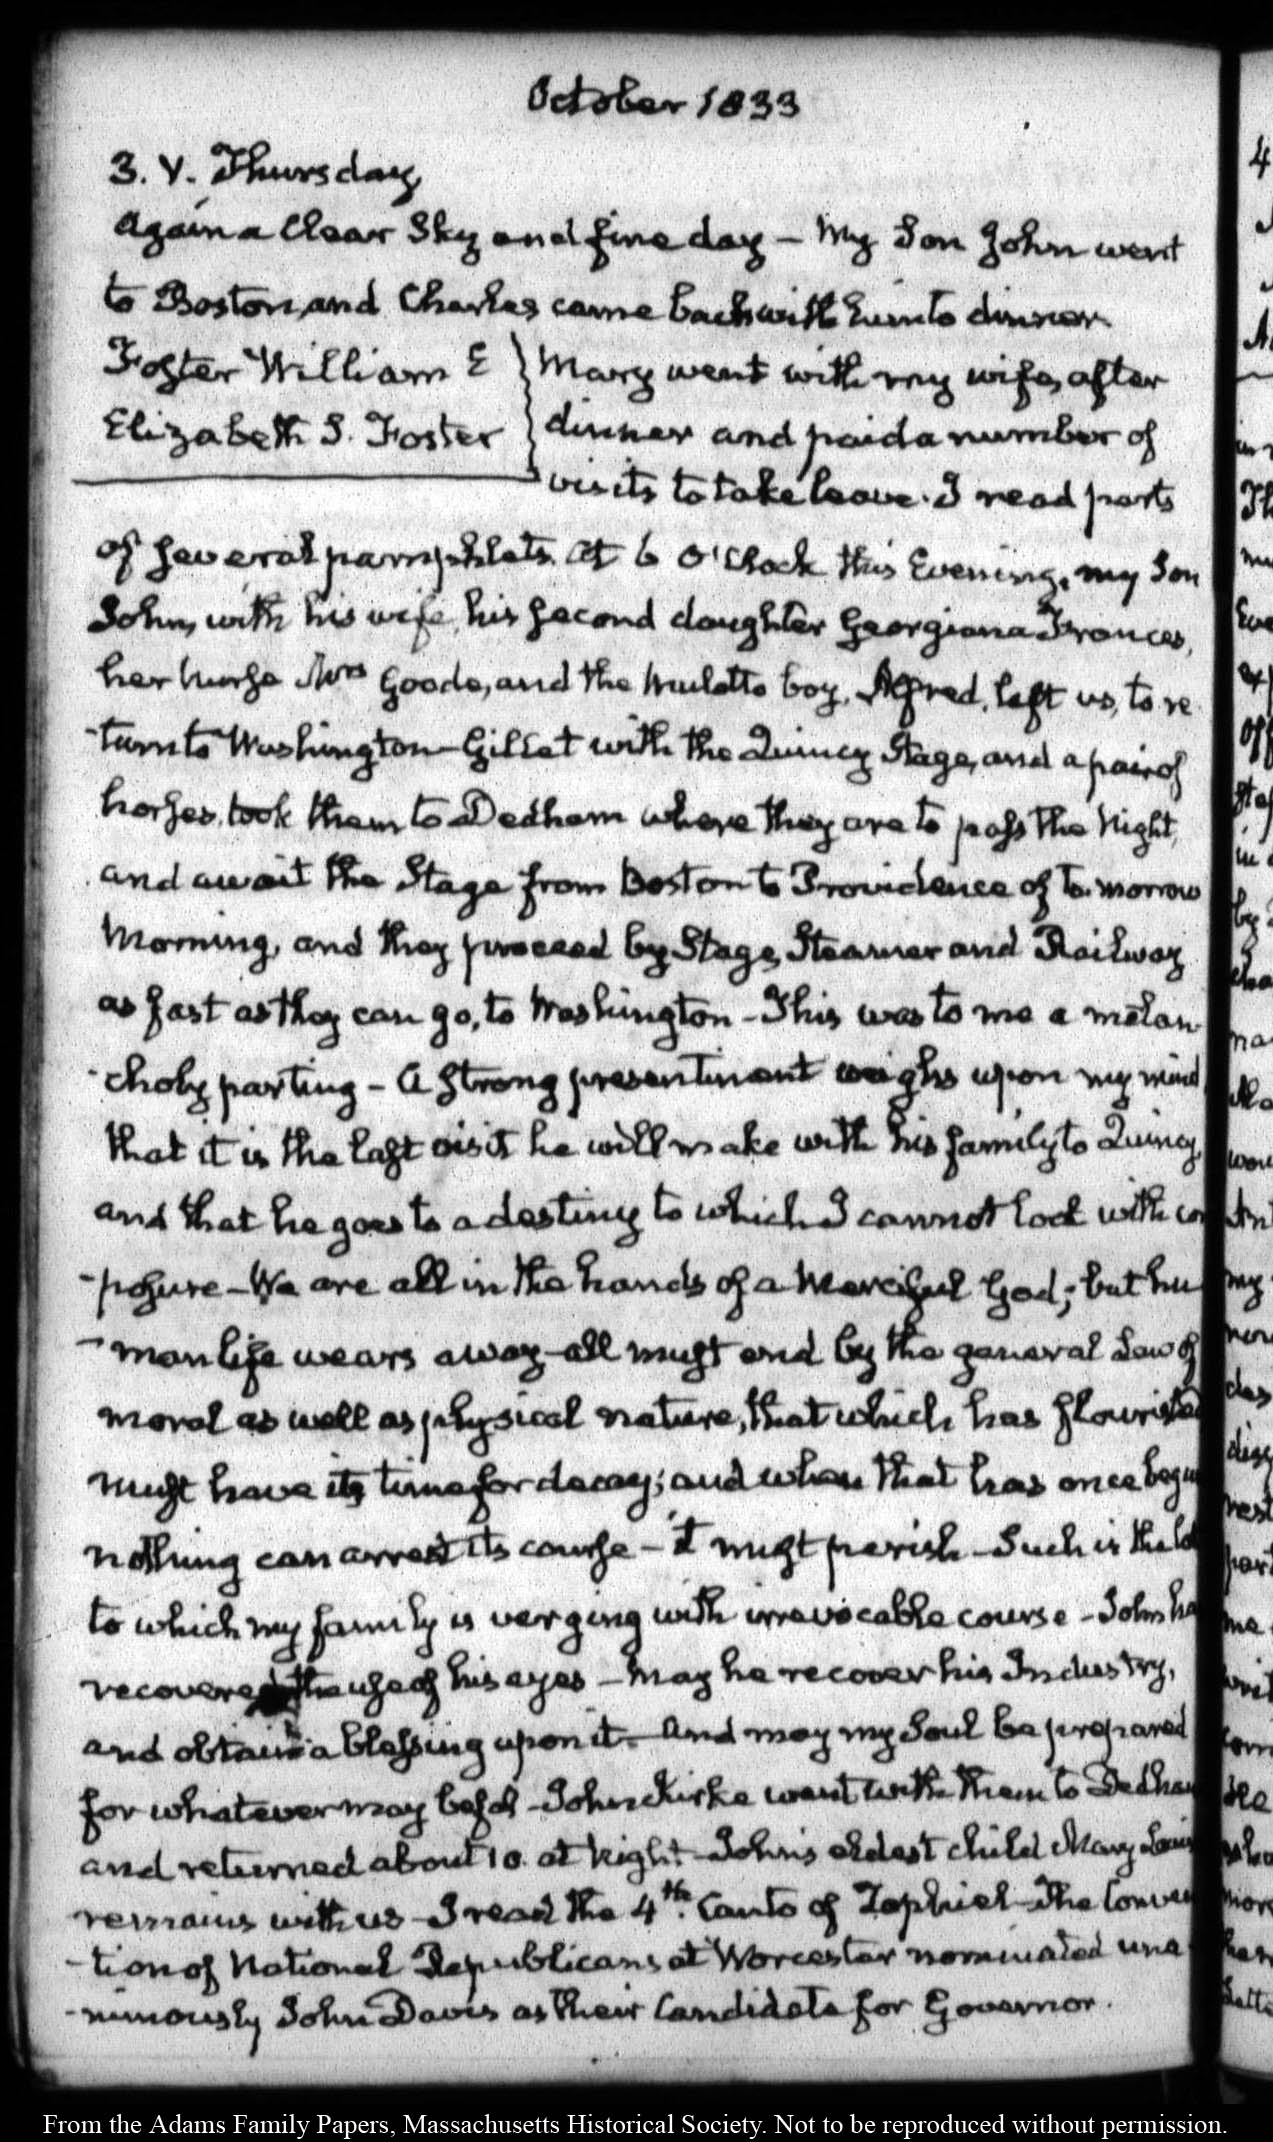 October 1833
3. V. Thursday
Again a clear Sky and fine day – My Son John went
to Boston, and Charles came back with him to dinner
Foster William E
Elizabeth S. Foster
Mary went with my wife, after
dinner and paid a number of
visits to take leave. I read parts
of several pamphlets. At 6 O'Clock this Evening, my Son
John, with his wife, his second daughter Georgiana Frances,
her nurse Mrs Goods, and the Mulatto boy, Alfred, left us, to re
-turn to Washington – Gillet with the Quincy Stage, and a pair of
horses, took them to Dedham where they are to pass the Night,
and await the Stage from Boston to Providence of to-morrow
Morning, and they proceed by Stage, Steamer and Railway
as fast as they can go, to Washington – This was to me a melan
-choly parting – A strong presentiment weighs upon my mind
that it is the last visit he will make with his family to Quincy,
and that he goes to a destiny to which I cannot look with com
-posure – We are all in the hands of a Merciful God; but hu
-man life wears away – all must end by the general Law of
moral as well as physical nature, that which has flourished
must have its time for decay; and when that has once begun
nothing can arrest its course – it must perish – Such is the lot
to which my family is verging with irrevocable course – John has
recovered the use of his eyes – May he recover his Industry,
and obtain a blessing upon it – And may my Soul be prepared
for whatever may befal – John Kirke went with them to Dedham
and returned about 10. at Night – John's eldest child Mary Louisa
remains with us – I read the 4th. Canto of Zophiel – The Conven
-tion of National Republicans at Worcester nominated una
-nimously John Davis as their Candidate for Governor.
From the Adams Family Papers, Massachusetts Historical Society. Not to be reproduced without permission.